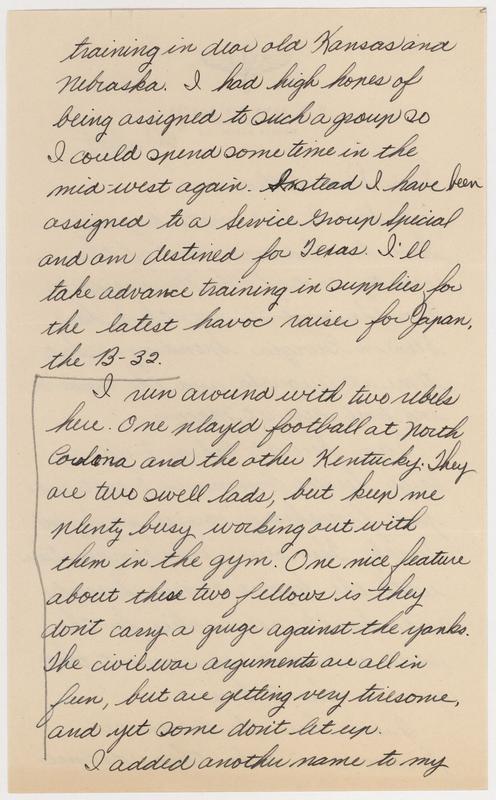 training in dear old Kansas and
Nebraska. I had high hopes of
being assigned to such a group so
I could spend some time in the
mid-west again. Instead I have been
assigned to a Service Group Special
and am destined for Texas. I'll
take advance training in supplies for
the latest havoc raiser for Japan,
the B-32.
I run around with two rebels
here. One played football at North
Carolina and the other Kentucky. They
are two swell lads, but keep me
plenty busy working out with
them in the gym. One nice feature
about these two fellows is they
don't carry a gruge against the yanks.
The civil war arguments are all in
fun, but are getting very tiresome,
and yet some don't let up.
I added another name to my